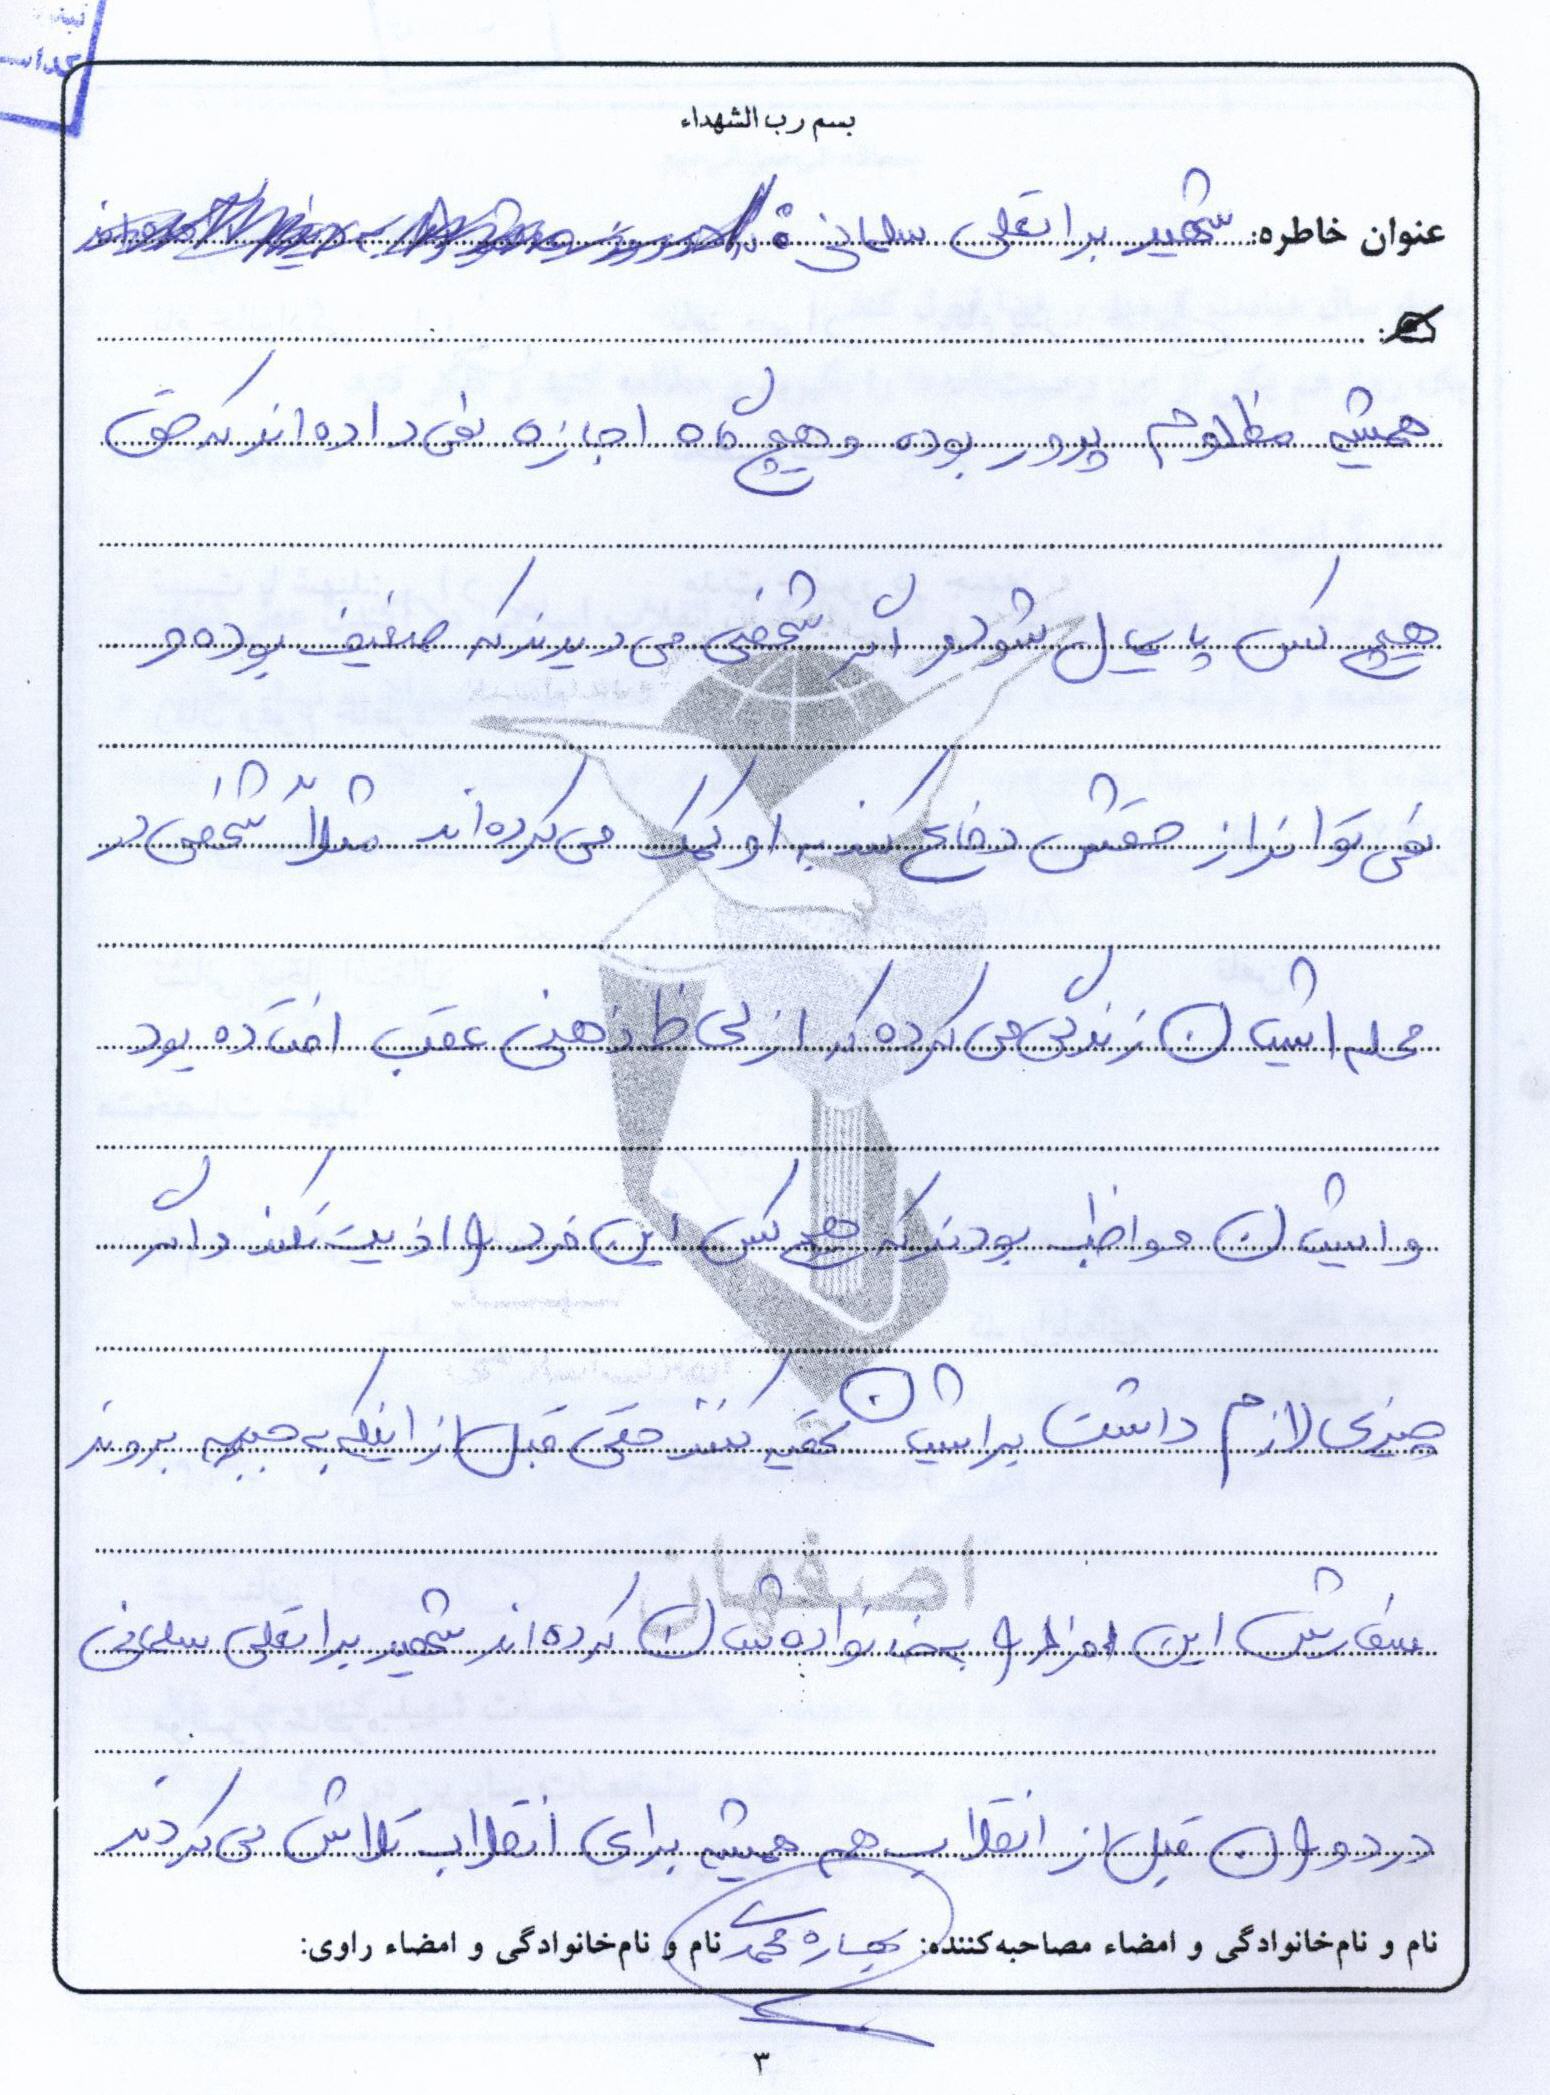 بسم رب الشهداء
عنوان خاطره: شهید براتعلی سلمانی :
همیشه مظلوم پرور بوده و هیچ گاه اجازه نمی داده اند که حق
هیچ کس پایمال شود و اگر شخصی می دیدند که ضعیف بوده و
نمی تواند از حقش دفاع کند به او کمک می کرده اند مثلاً شخصی در
محله ایشان زندگی می کرده که از لحاظ ذهنی عقب افتاده بود
و ایشان مواظب بودند که هیچ کس این فرد را اذیت نکند و اگر
چیزی لازم داشت برایشان تهیه کنند حتی قبل از اینکه به جبهه بروند
سفارش این افراد را به خانواده شان کرده اند شهید براتعلی سلمانی
در دوران قبل از انقلاب هم همیشه برای انقلاب تلاش می کردند
نام و نام‌خانوادگی و امضاء مصاحبه‌کننده: بهاره محمدی نام و نام‌خانوادگی و امضاء راوی:
۳
اصفهان